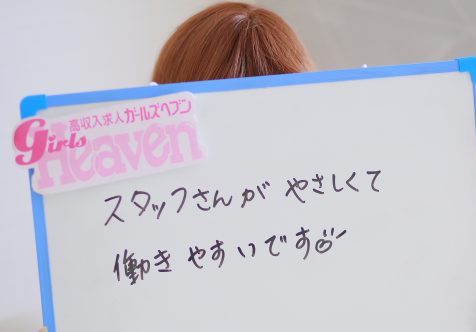 高収入求人ガールズヘブン
Girls
Heaven
スタッフさんが やさしくて
働きやすいです